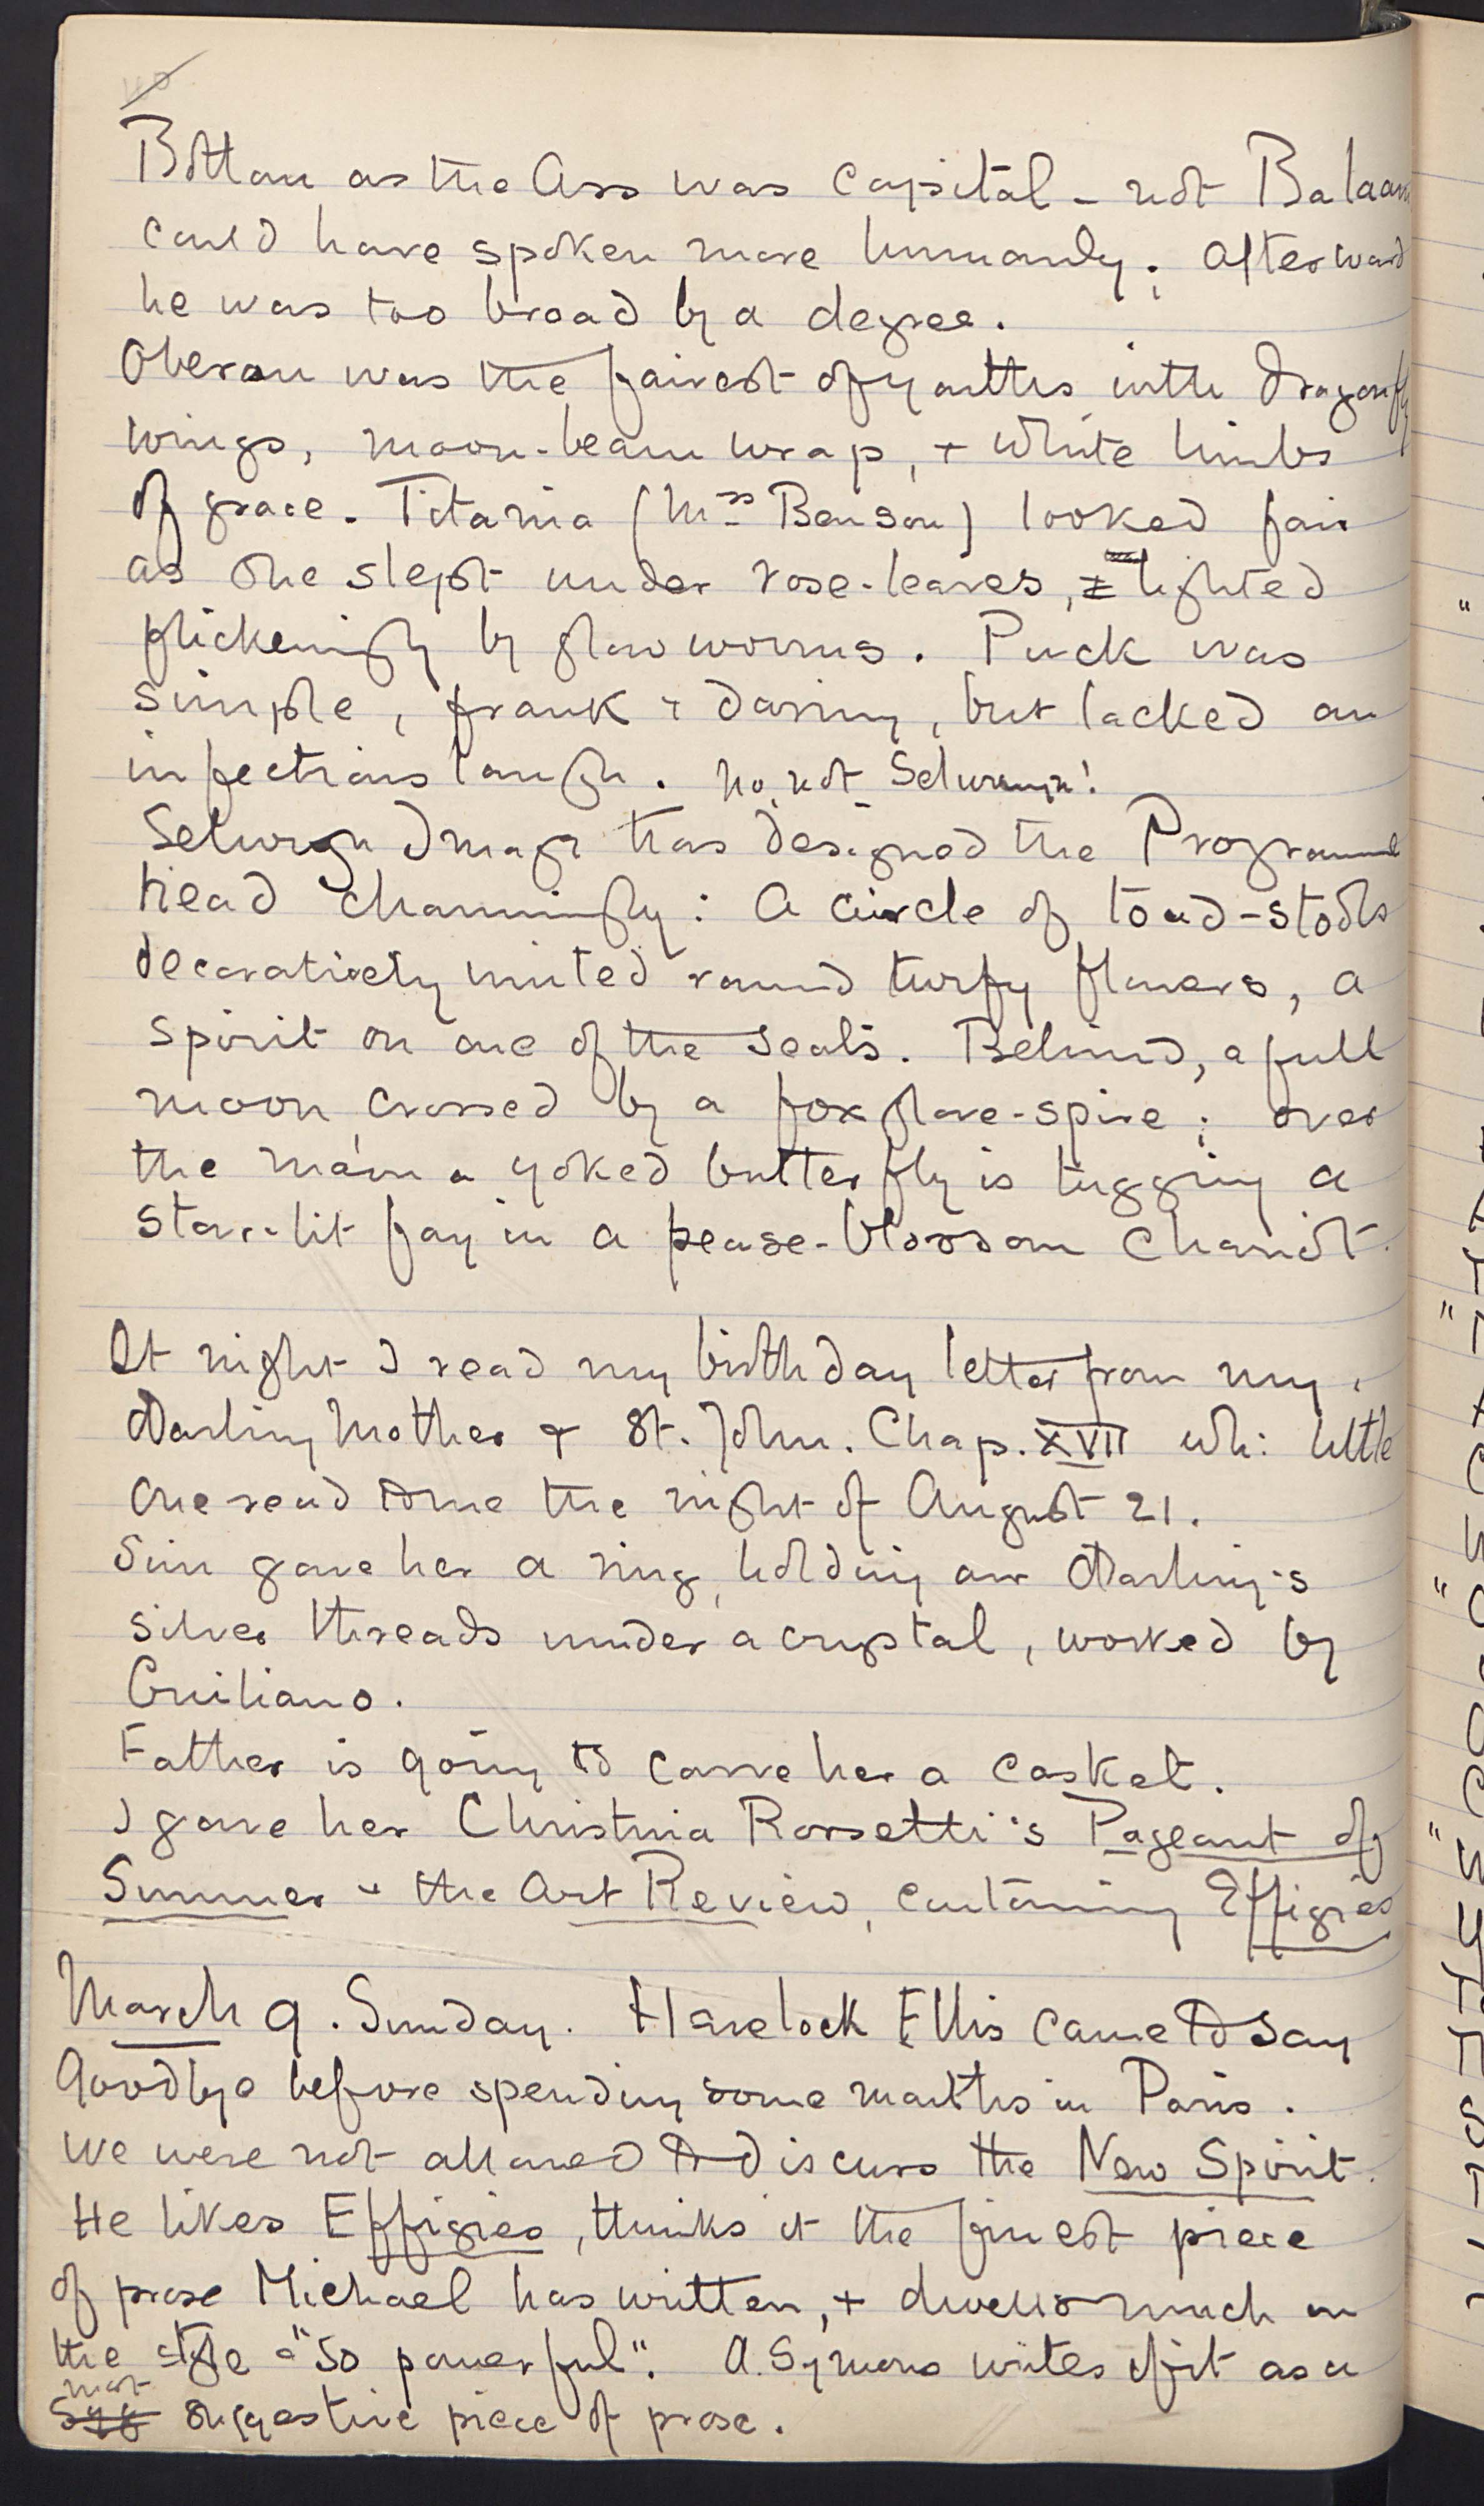 Bottom as the Ass was capital – not Balaam
could have spoken more humanly; afterward
he was too broad by a degree.
Oberon was the fairest of youths with dragonfly
wings, moon-beam wrap, + white limbs
of grace. Titania (Mrs Benson) looked fair
as she slept under rose-leaves, lighted
flickeringly by glow worms. Puck was
simple, frank & daring, but lacked an
infectious laugh. No, not Selwyn!
Selwyn Image has designed the Programme
head charmingly: A circle of toad-stools
decoratively united round turfy flowers, a
spirit on one of the seats. Behind, a full
moon, crossed by a foxglove-spire; over
the moon a yoked butterfly is tugging a
star-lit fay in a pease-blossom chariot.
At night I read my birthday letter from my
darling Mother & St. John. Chap. XVII wh: little
one read to me the night of August 21.
Sim gave her a ring, holding our darling's
silver threads under a crystal, worked by
Guiliano.
Father is going to carve her a casket.
I gave her Christina Rossetti's Pageant of
Summer & the Art Review, containing Effigies
March 9. Sunday. Havelock Ellis came to say
Goodbye before spending some months in Paris.
We were not allowed to discuss the New Spirit.
He likes Effigies, thinks it the finest piece
of prose Michael has written, + dwells much on
the style – "so powerful". A. Symons writes of it as a
most
Sugg suggestive piece of prose.